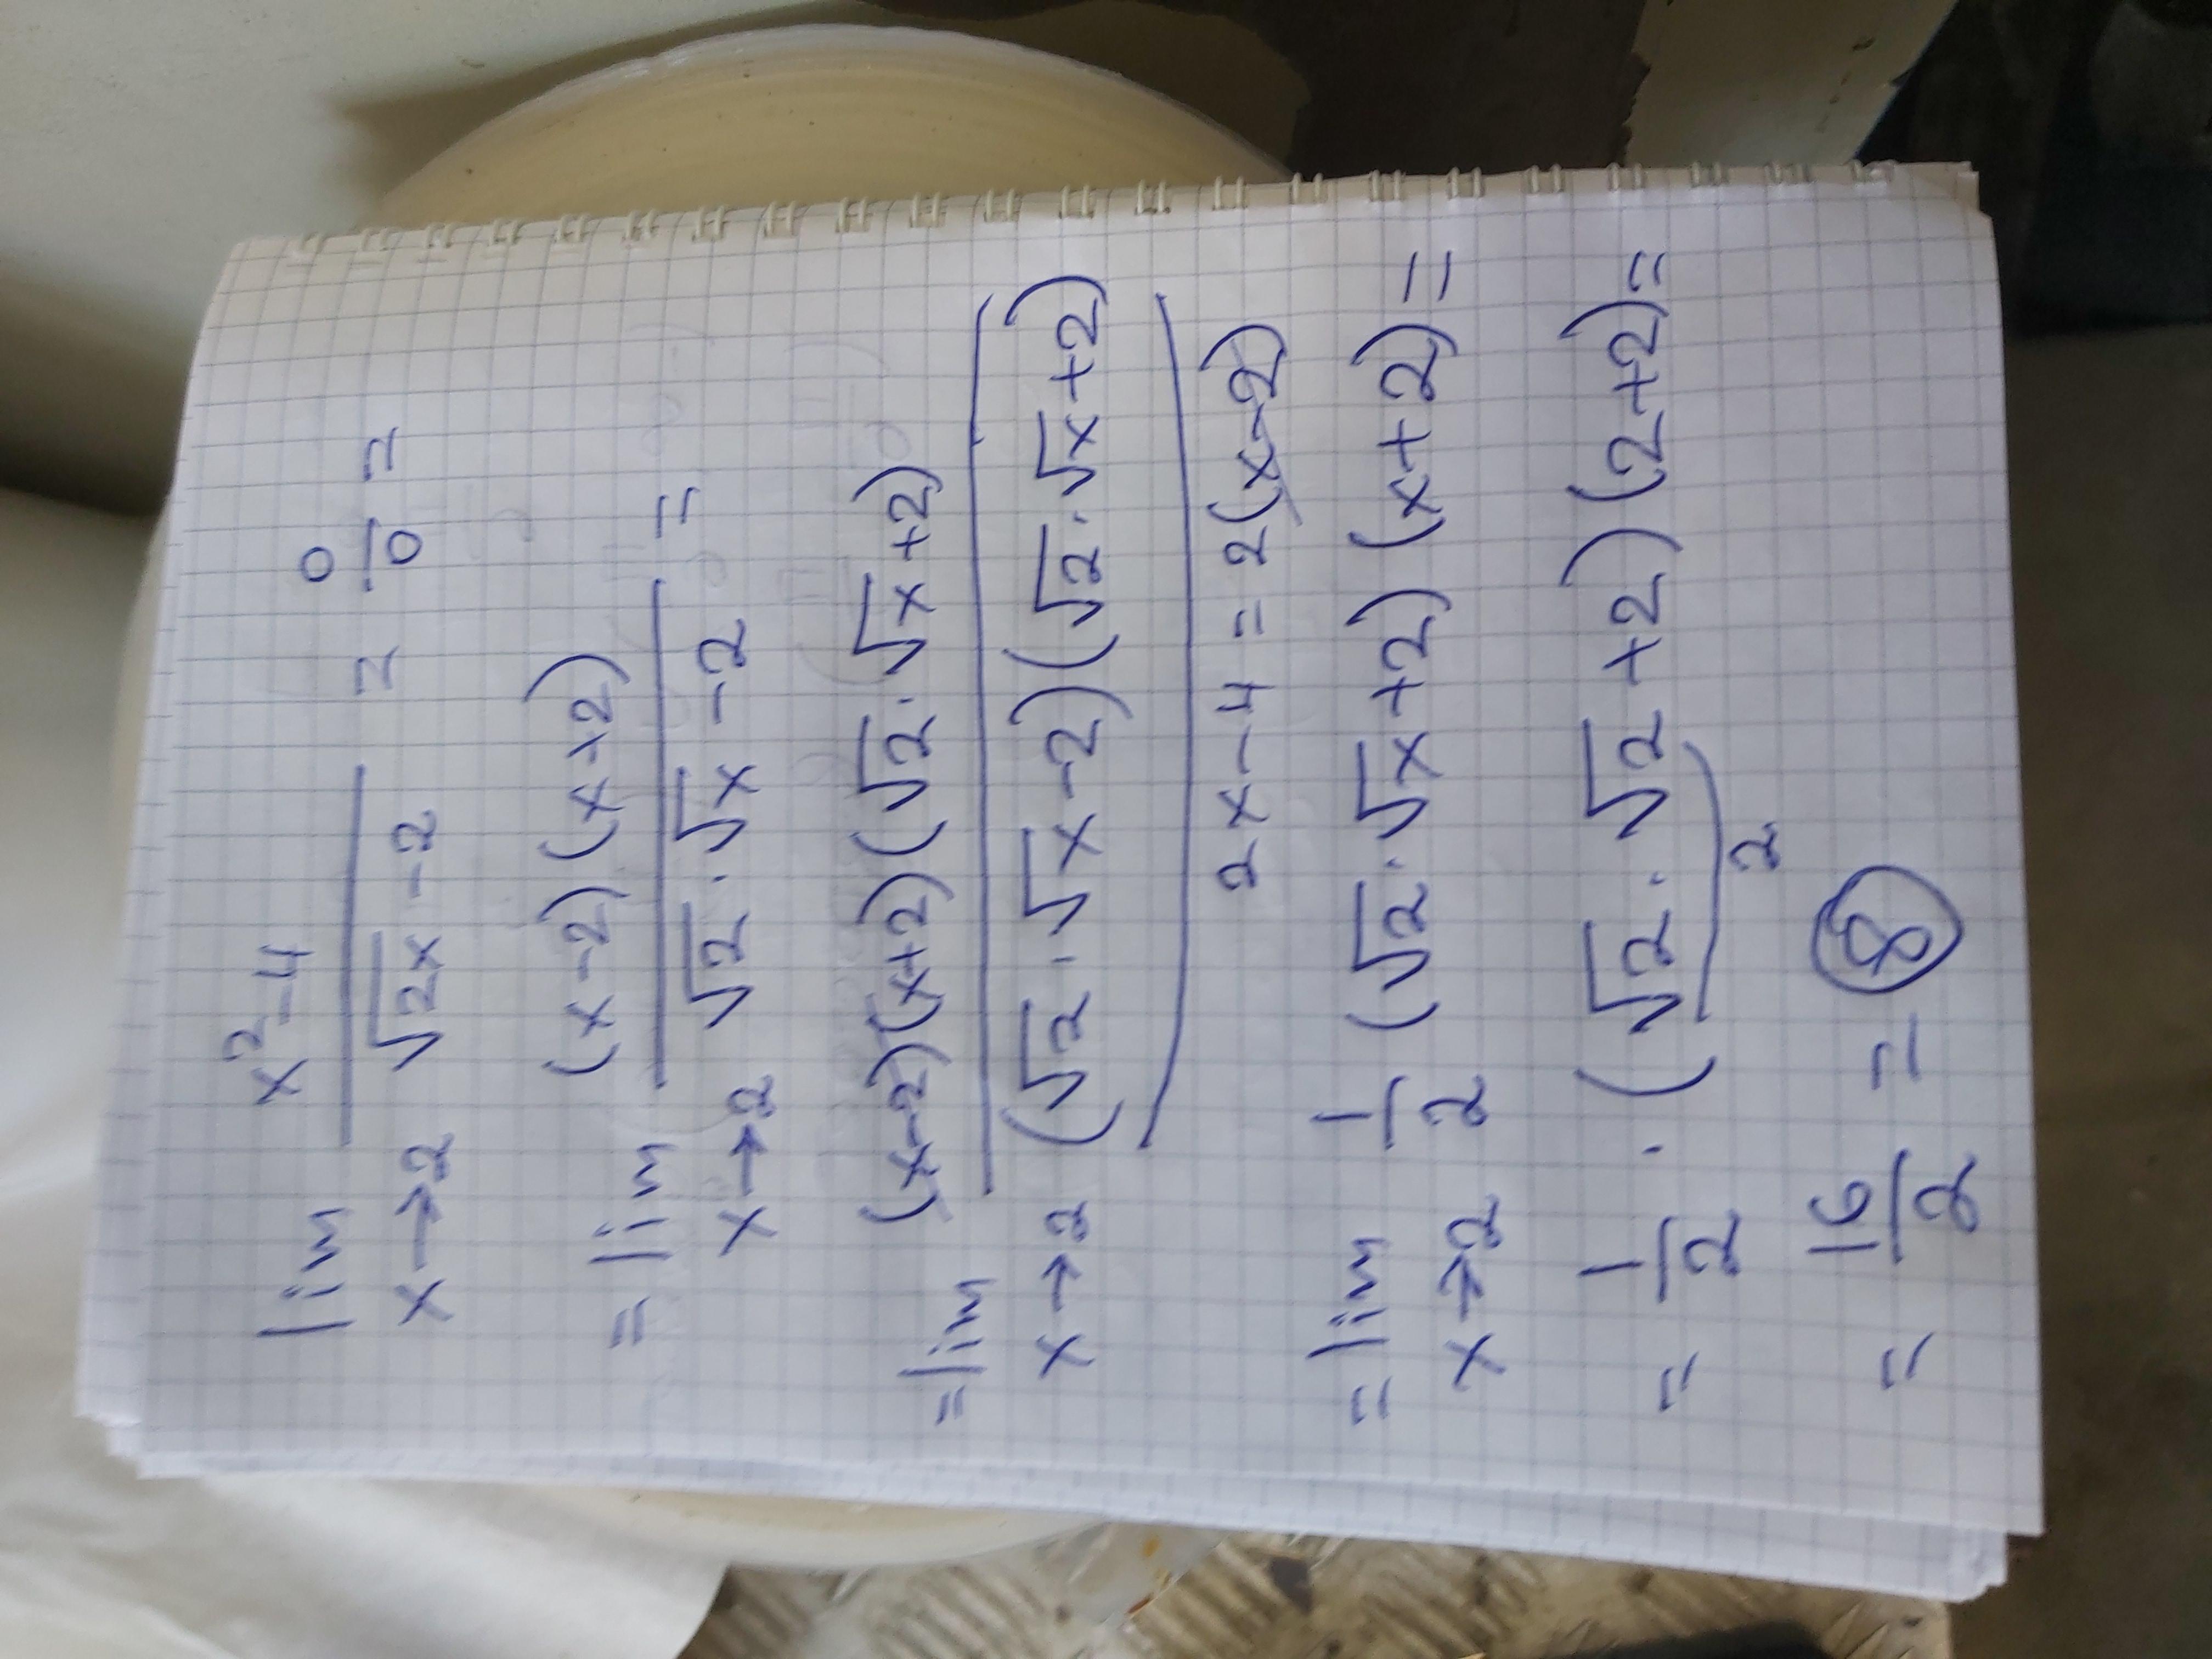 lim x→2 (x²-4)/(√2x -2) = 0/0 =
= lim x→2 (x-2)(x+2)/(√2·√x -2) =
= lim x→2 (x-2)(x+2)(√2·√x+2)/((√2·√x-2)(√2·√x+2))
2x-4 = 2(x-2)
= lim x→2 1/2 (√2·√x+2)(x+2) =
= 1/2 · (√2·√2+2)(2+2) =
2
= 16/2 = 8